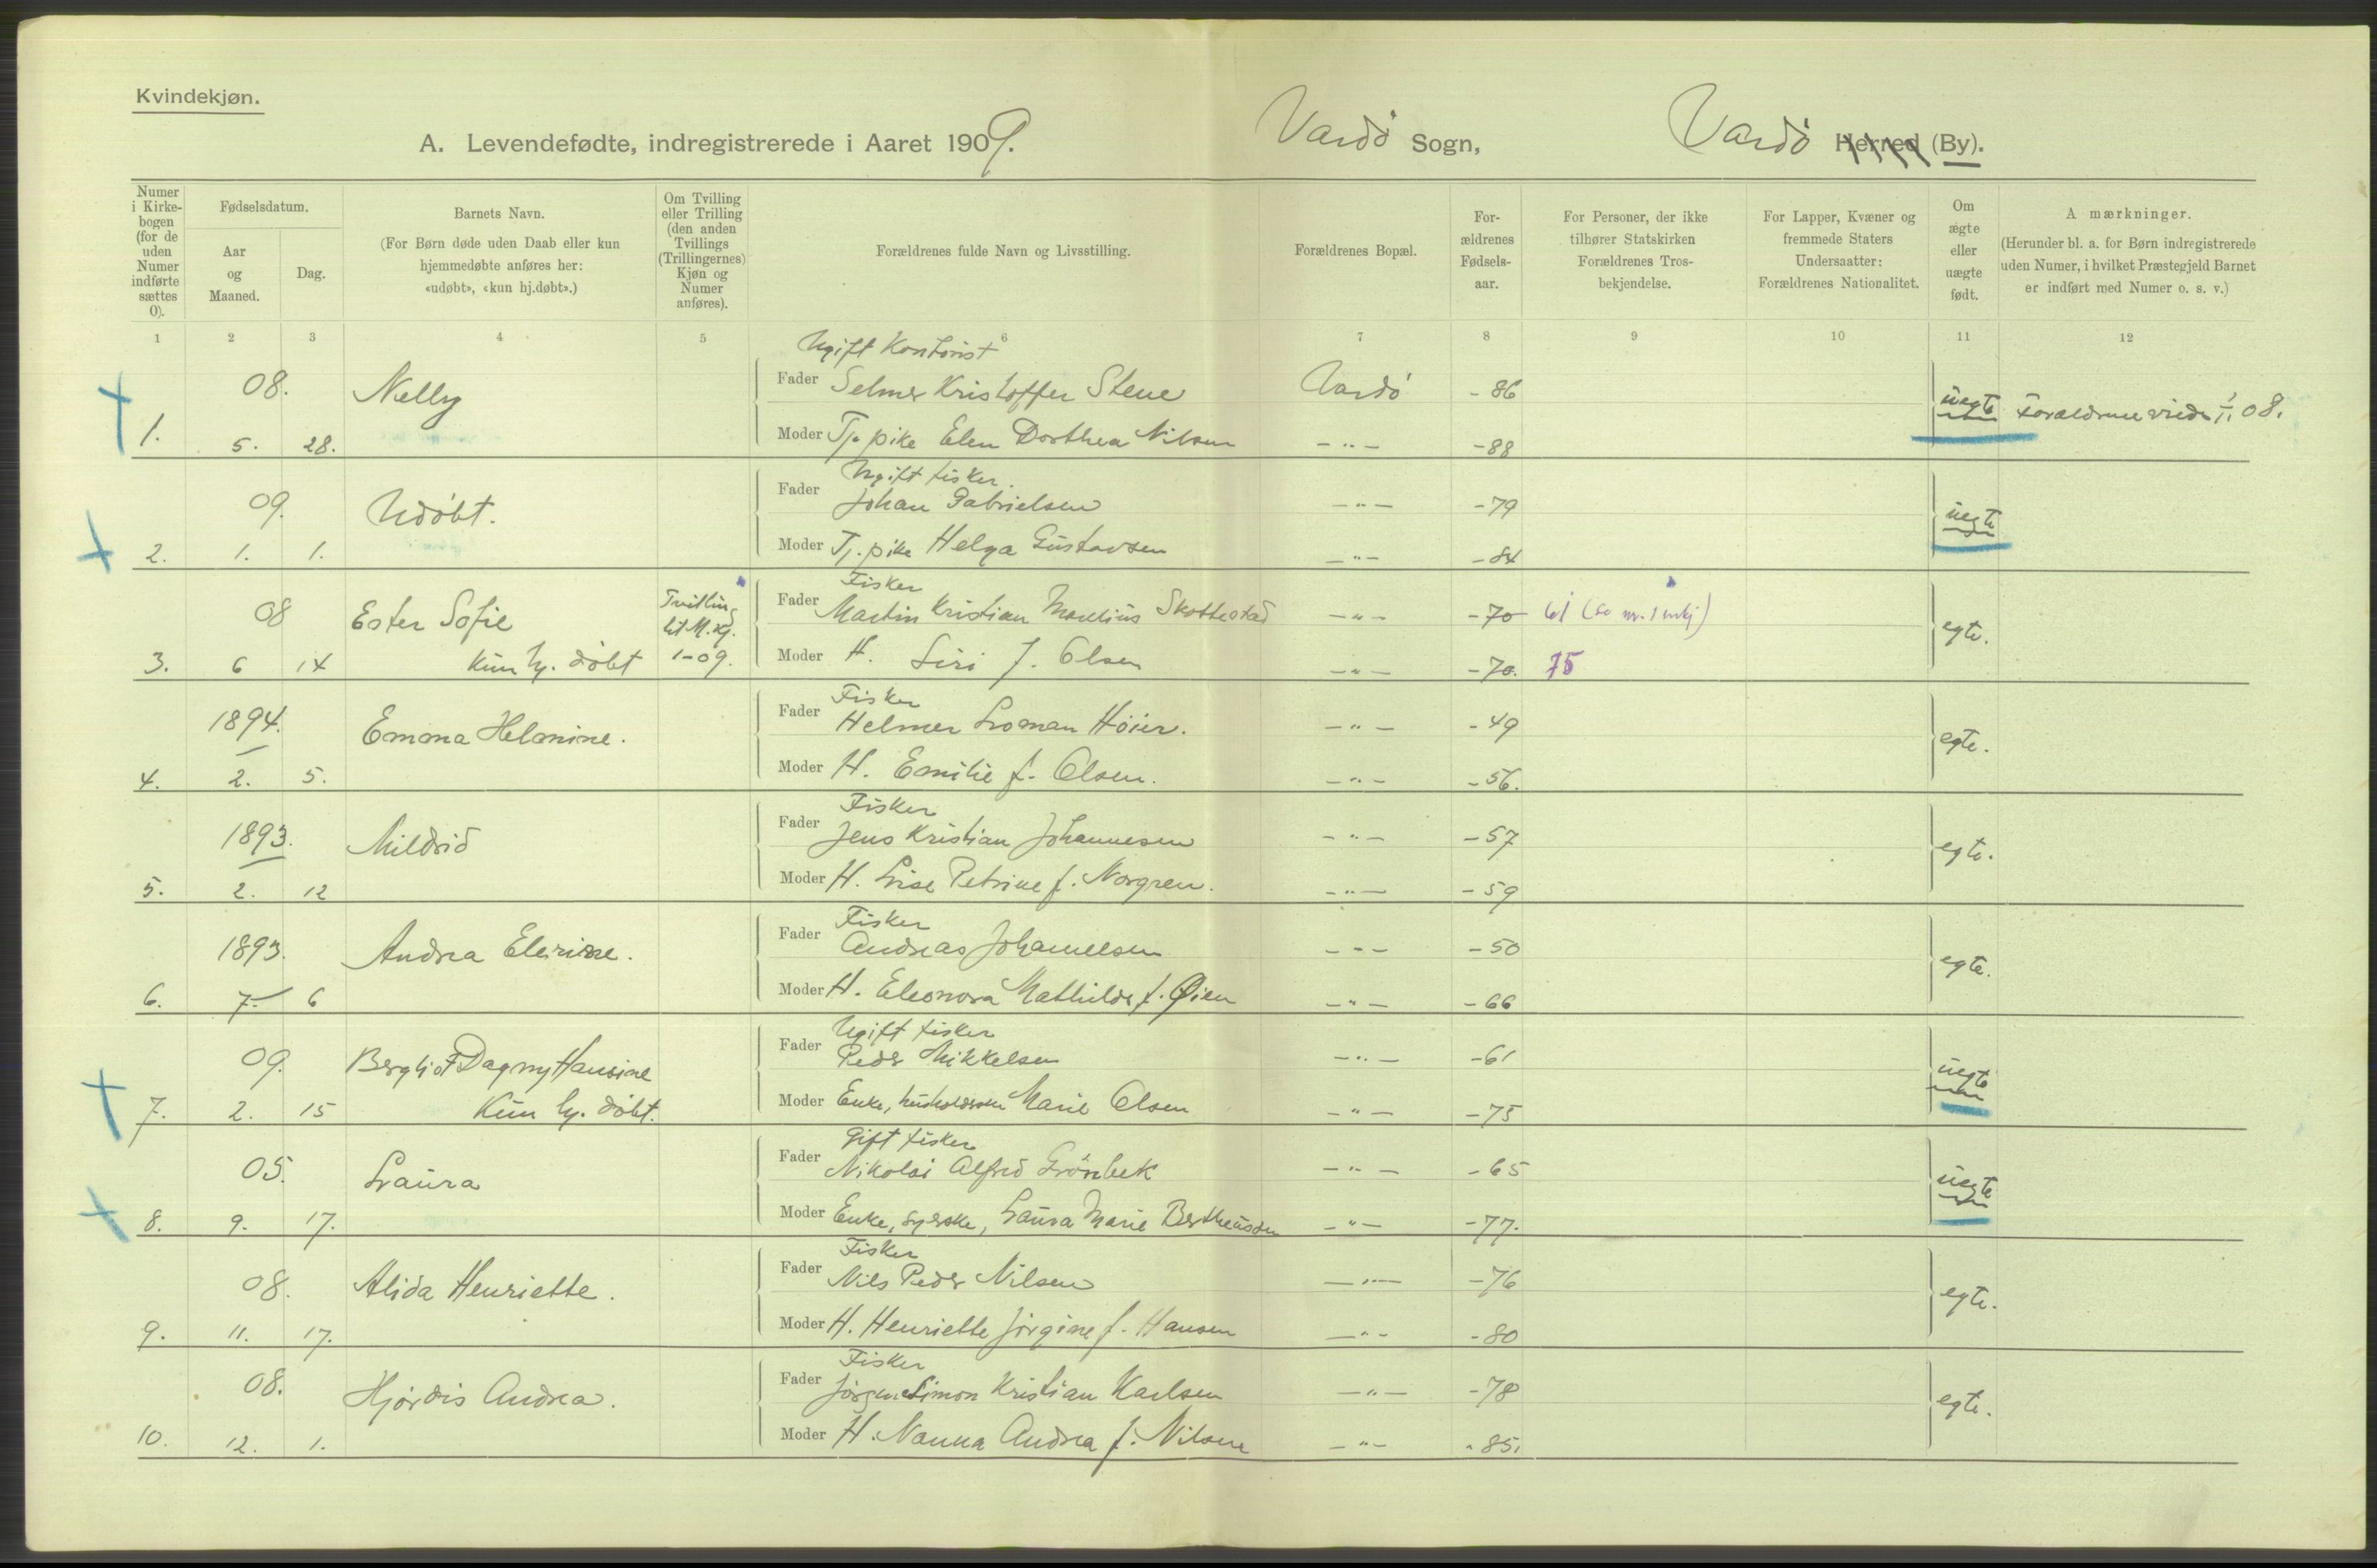 Kvindekjøn.
A. Levendefødte, indregistrerede i Aaret 1909. Vardö Sogn, Vardö Herred (By).
Numer i Kirkebogen (for de uden Numer indførte sættes 0).
Fødselsdatum.
Aar og Maaned.
Dag.
Barnets Navn.
(For Børn døde uden Daab eller kun hjemmedøbte anføres her: «udøbt», «kun hj.døbt».)
Om Tvilling eller Trilling (den anden Tvillings (Trillingernes) Kjøn og Numer anføres).
Forældrenes fulde Navn og Livsstilling.
Forældrenes Bopæl.
For-ældrenes Fødsels-aar.
For Personer, der ikke tilhører Statskirken Forældrenes Tros-bekjendelse.
For Lapper, Kvæner og fremmede Staters Undersaatter: Forældrenes Nationalitet.
Om ægte eller uægte født.
A mærkninger.
(Herunder bl. a. for Børn indregistrerede uden Numer, i hvilket Præstegjeld Barnet er indført med Numer o. s. v.)
1 2 3 4 5 6 7 8 9 10 11 12
Ugift Kontorist
08. Nelly Fader Selmer Kristoffer Stene Vardö - 86 uegte Forældrene viede 08.
1. 5. 28. Moder Tj. pike Elen Dorthea Nilsen - " - - 88
Ugift fisker.
09. Udöbt. Fader Johan Gabrielsen - " - - 79 uegte
2. 1. 1. Moder Tj. pike Helga Gustavsen - " - - 84
Fisker
08 Ester Sofie Tvilling til M.kj. 1-09. Fader Martin Kristian Skottestad - " - - 70 61 (se nr. 1 mkj) egte.
3. 6 14 Kun hj. döbt Moder H. Siri f. Olsen - " - - 70. 75
Fisker
1894. Emma Helmine. Fader Helmer Loman Höier. - " - - 49 egte.
4. 2. 5. Moder H. Emilie f. Olsen. - " - - 56.
Fisker
1893. Mildrid Fader Jens Kristian Johannesen - " - - 57 egte.
5. 2. 12 Moder H. Lise Petrine f. Norgren. - " - - 59
Fisker
1893. Andrea Fader Andreas Johannesen - " - - 50 egte.
6. 7. 6 Moder H. Eleonora Mathilde f. Øien - " - - 66
Ugift fisker
09. Bergliot Dagny Hansine Fader Peder Mikkelsen - " - - 61 uegte
7. 2. 15 Kun hj. döbt. Moder Enke, husholderske Marie Olsen - " - - 75
Gift fisker
05. Laura Fader Nikolai Alfred Grönbek - " - - 65 uegte
8. 9. 17. Moder Enke, syerske, Laura Marie Bertheussen - " - - 77.
Fisker
08. Alida Henriette. Fader Nils Peder Nilsen - " - - 76 egte.
9. 11. 17. Moder H. Henriette Jörgine f. Hansen - " - - 80
Fisker
08. Hjördis Andrea. Fader Jörgen Simon Kristian Karlsen - " - - 78 egte.
10. 12. 1. Moder H. Nanna Andrea f. Nilsen - " - - 85.